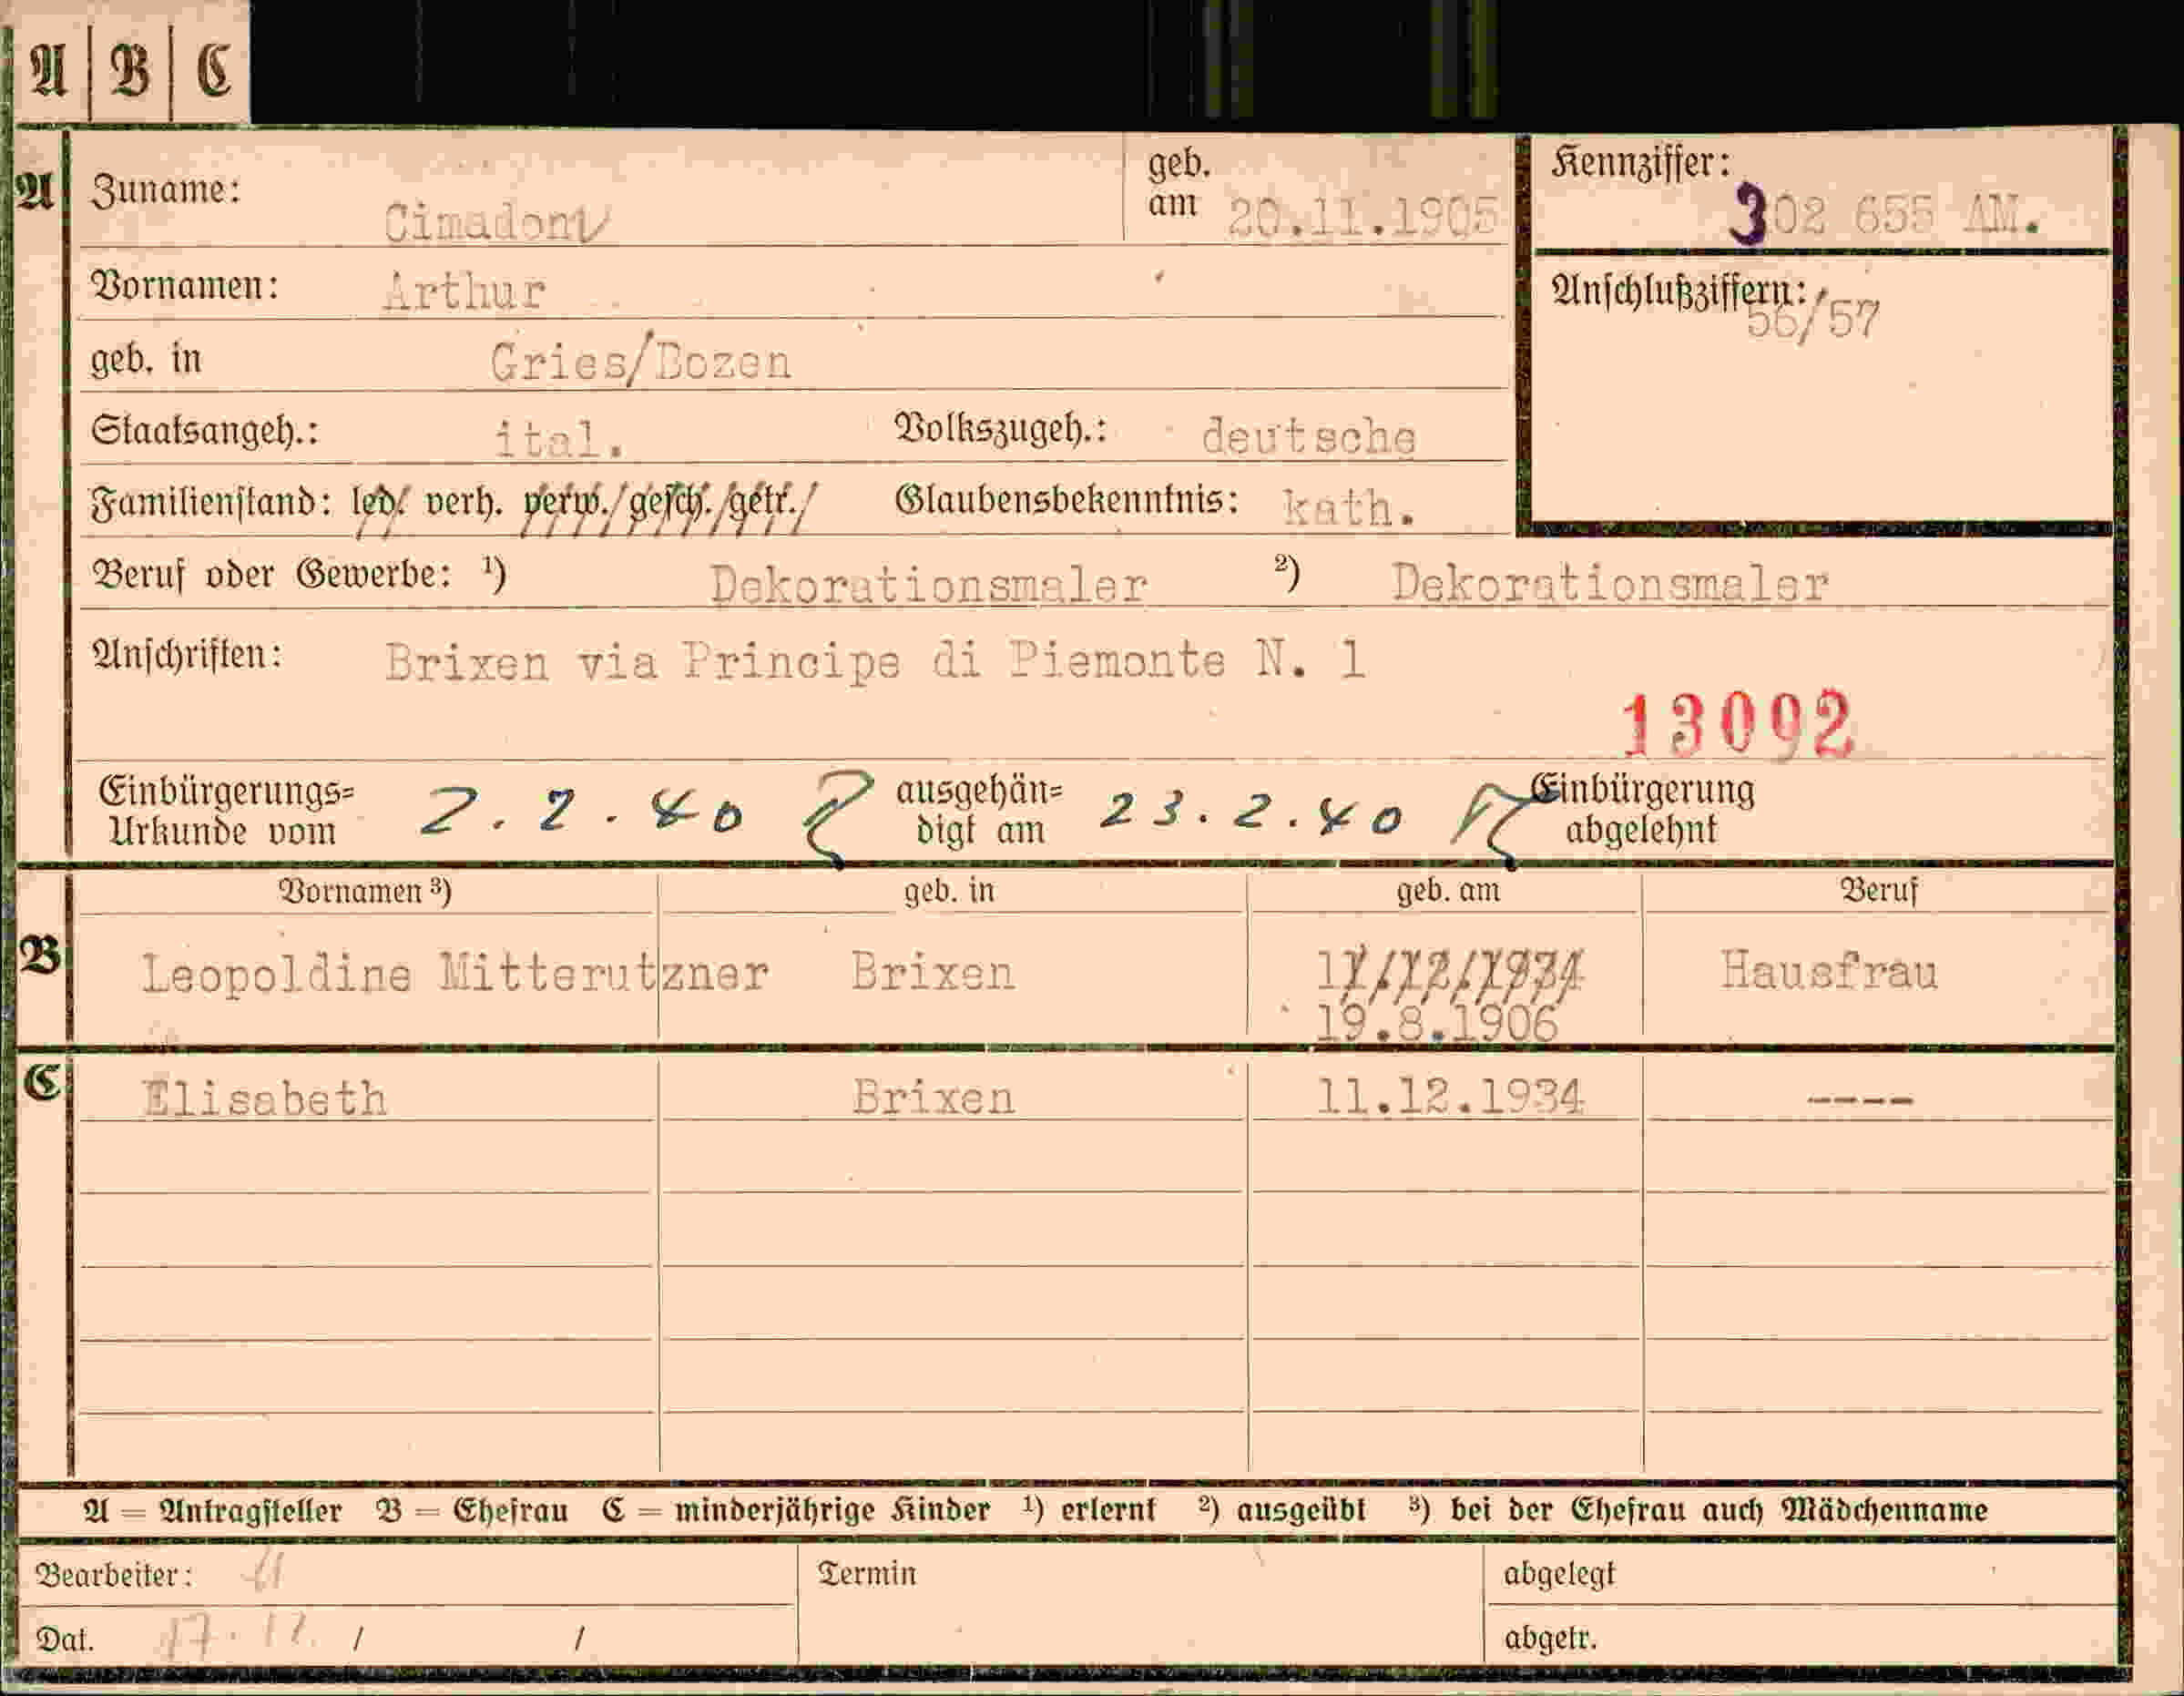 A B C
A Zuname: Cimadom geb. am 20.11.1905
Kennziffer: 302 655 AM.
Vornamen: Arthur
Anschlußziffern: 56/57
geb. in Gries/Bozen
Staatsangeh.: ital. Volkszugeh.: deutsche
Familienstand: led. verh. verw. gesch. getr. Glaubensbekenntnis: kath.
Beruf oder Gewerbe: ¹) Dekorationsmaler ²) Dekorationsmaler
Anschriften: Brixen via Principe di Piemonte N. 1
13092
Einbürgerungs=
Urkunde vom 2.2.40
ausgehän=
digt am 23.2.40
Einbürgerung
abgelehnt
Vornamen ³) geb. in geb. am Beruf
B Leopoldine Mitterutzner Brixen 11/12/1934 Hausfrau
19.8.1906
C Elisabeth Brixen 11.12.1934 ----
A = Antragsteller B = Ehefrau C = minderjährige Kinder ¹) erlernt ²) ausgeübt ³) bei der Ehefrau auch Mädchenname
Bearbeiter: Termin abgelegt
Dat. 17.12. / / abgetr.